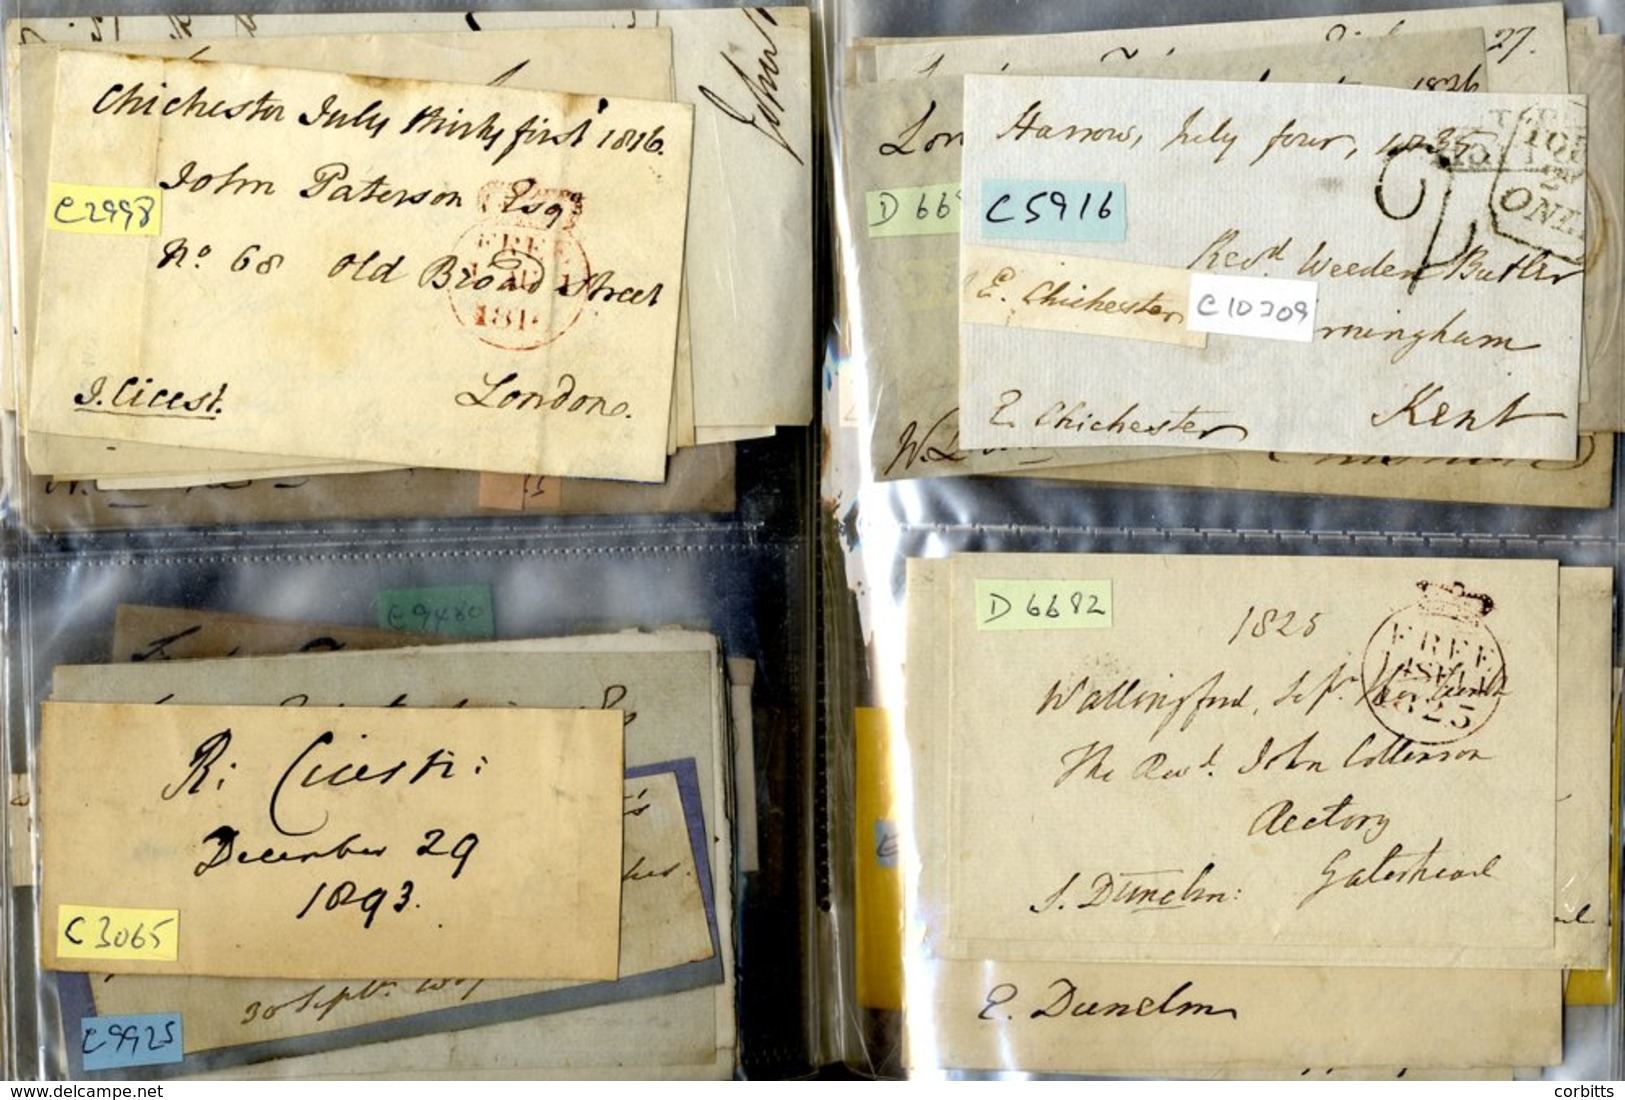 Chichester July thirty first 1816.
John Paterson Esqr
No. 68 Old Broad Street
London.
J. Cicest.
C2998
FREE
1816
John
27.
1826
Lon
D 66
Harrow, July four, 1835
C5916
Revd. Weeden Butler
E. Chichester
C10309
rningham
E. Chichester
Kent
ONE
C9480
R: Cicestr:
December 29
1893.
C3065
30 Septr.
C9925
D6682
1825
FREE
1825
Wallingford, Septr.
The Revd. John Collinson
Rectory
Gateshead
S. Dunelm:
E. Dunelm
delcampe.net
corbitts